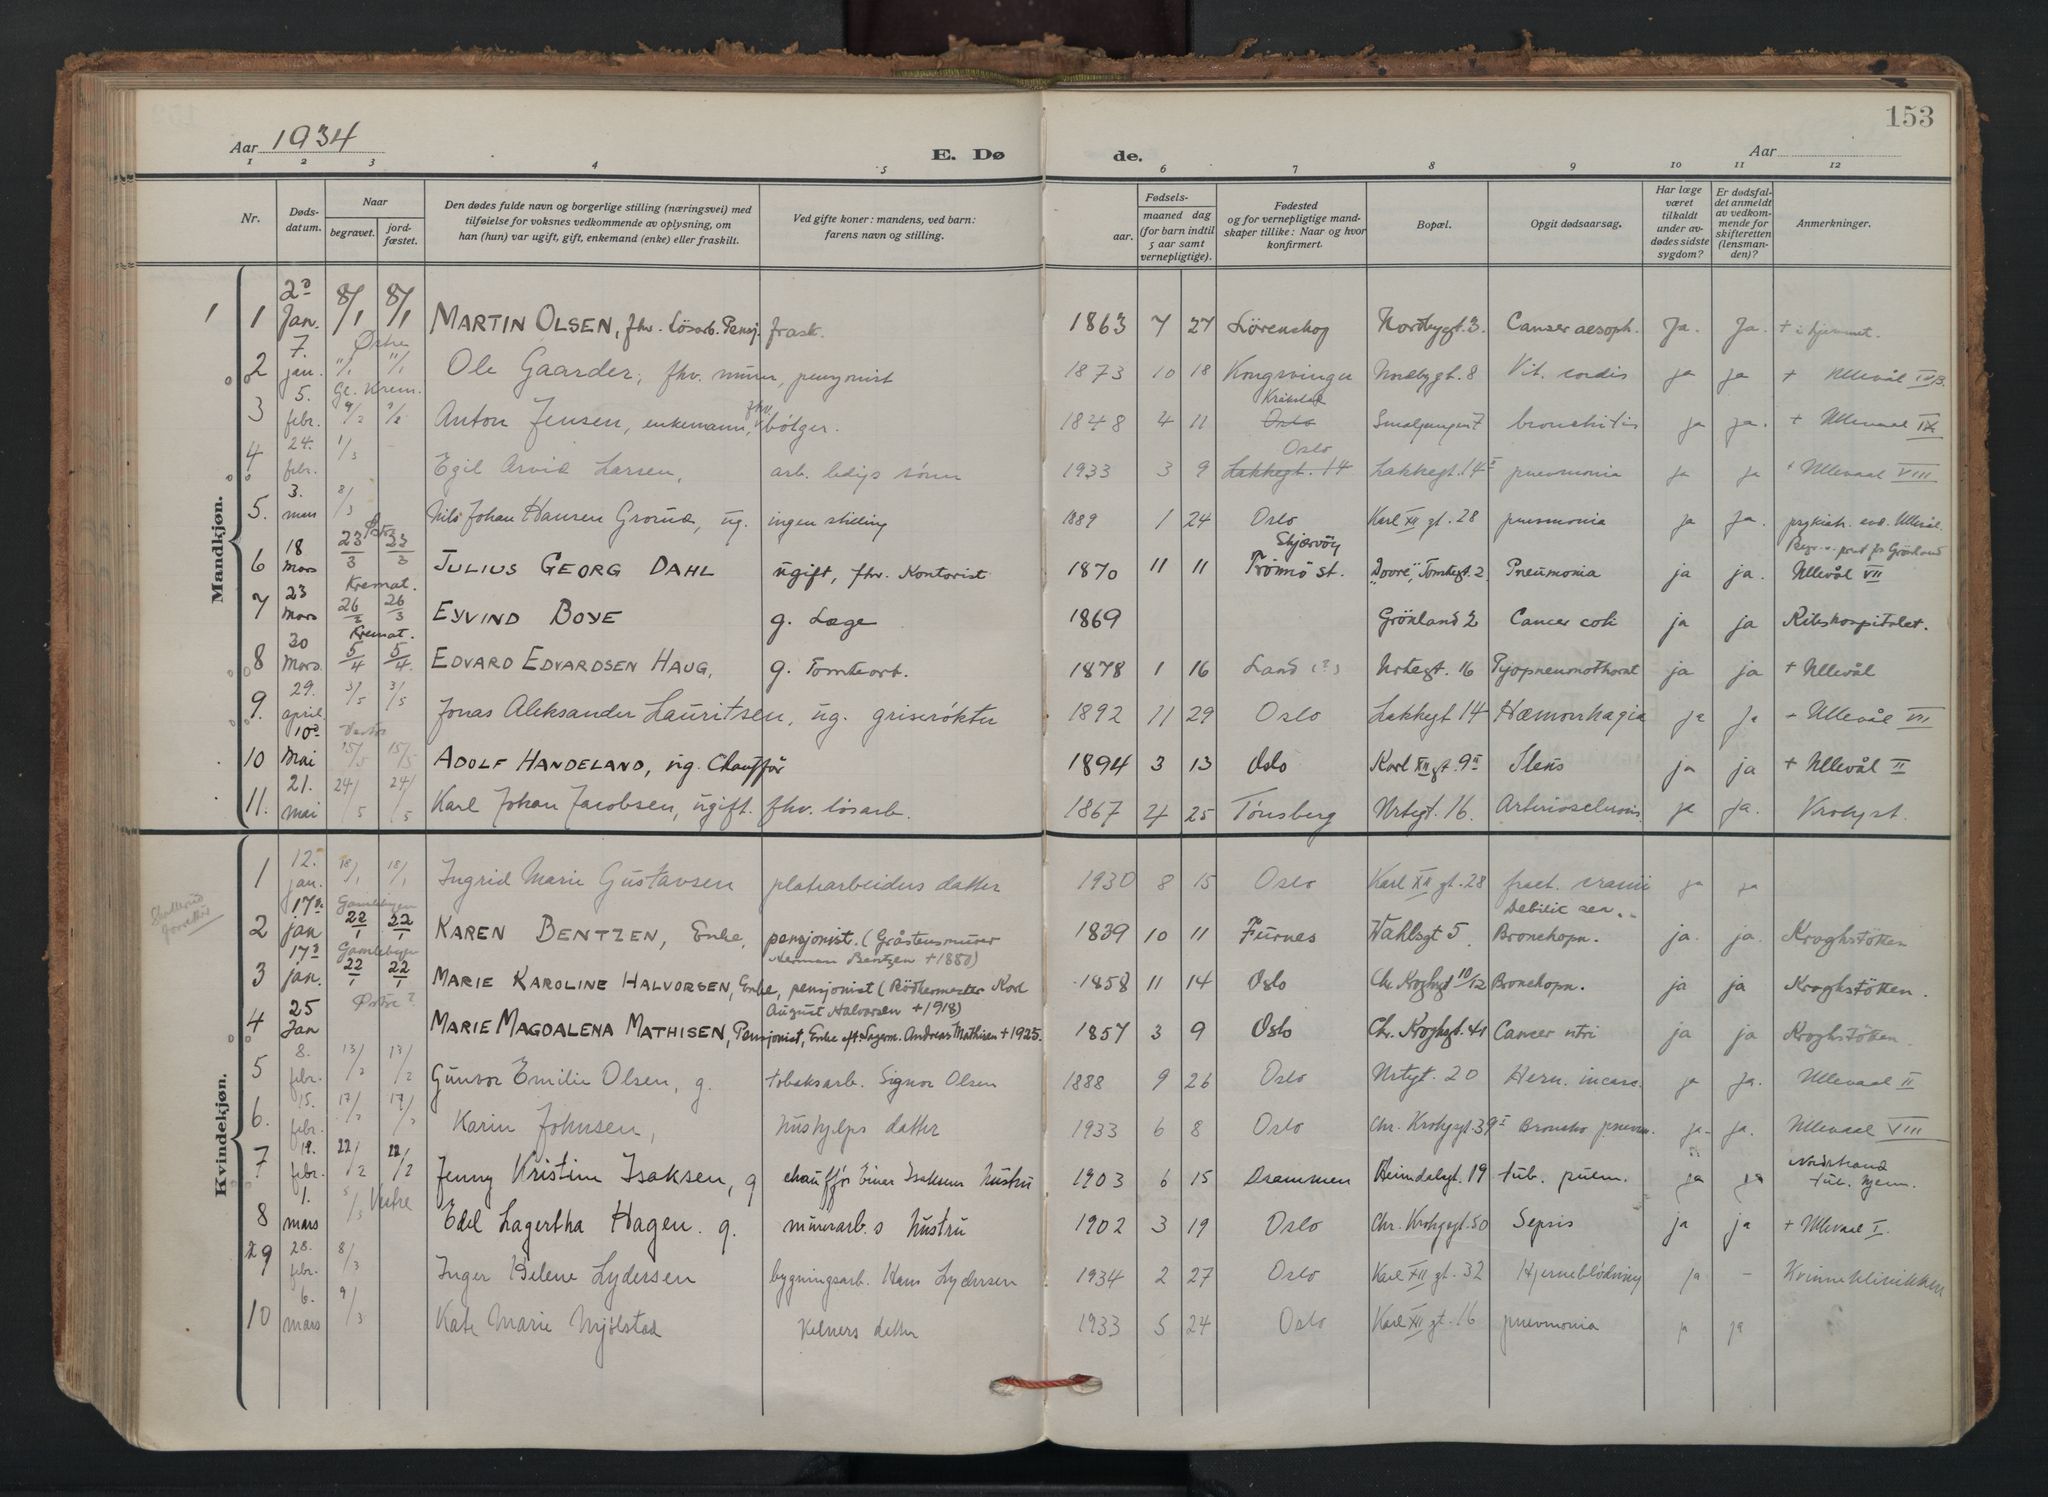 153
Aar 1934
E. Døde.
Aar
1 2 3 4 5 6 7 8 9 10 11 12
Nr.
Døds-datum.
Naar
begravet.
jord-fæstet.
Den dødes fulde navn og borgerlige stilling (næringsvei) med
tilføielse for voksnes vedkommende av oplysning, om
han (hun) var ugift, gift, enkemand (enke) eller fraskilt.
Ved gifte koner: mandens, ved barn:
farens navn og stilling.
Fødsels-
aar.
maaned dag
(for barn indtil
5 aar samt
vernepligtige).
Fødested
og for vernepligtige mand-
skaper tillike: Naar og hvor
konfirmert.
Bopæl.
Opgit dødsaarsag.
Har læge
været
tilkaldt
under av-
dødes sidste
sygdom?
Er dødsfal-
det anmeldt
av vedkom-
mende for
skifteretten
(lensman-
den)?
Anmerkninger.
Mandkjøn.
1 2 Jan. 8/1 8/1 MARTIN OLSEN, fhv. Løsarb. Pensj. frask. 1863 7 27 Lørenskog Nordbygt. 3. Canser aesoph. Ja. Ja. + i hjemmet.
Østre
2 7. jan. "/1 "/1 Ole Gaarder, fhv. murer, pensjonist 1873 10 18 Kongsvinger Nordbygt. 8 Vit. cordis ja ja + Ullevål
Krem.
3 5. febr. 9/2 9/2 Anton Jensen, enkemann, fhv. bólger. 1848 4 11 Kråkstad Oslo Smalgangen 7 bronchitis ja ja. + Ullevaal IX
4 24. febr. 1/3 - Egil Arvid Larsen, arb. ledigs sønn 1933 3 9 Oslo Lakkegt. 14 Lakkegt. 14 II pnevmonia ja ja + Ullevaal VIII
5. 3. mars 8/3 Nils Johan Hansen Grorud, ug. ingen stilling 1889 1 24 Oslo Karl XII gt. 28 pnevmonia ja ja. psykiatr. avd. Ullevål.
Østre
6 18 Mars 23/3 23/3 JULIUS GEORG DAHL ugift, fhv. Kontorist 1870 11 11 Skjærvöy Tromsö st. "Dovre", Tomtegt. 2 Pneumonia ja ja. Ullevål VII
Kremat.
7 23 Mars 26/3 26/3 EYVIND BOYE g. Læge 1869 Grönland 2 Cancer coli ja ja Rikshospitalet.
Kremat.
8 30 Mars 5/4 5/4. EDVARD EDVARDSEN HAUG, g. Tomtearb. 1878 1 16 Land (?) Urtegt. 16 Pyopneumothorat ja ja + Ullevål
9. 29. april. 3/5 3/5 Jonas Aleksander Lauritsen, ug. griserøkter 1892 11 29 Oslo Lakkegt 14 Hæmorrhagia ja ja + Ullevål VII
10 10 Mai 15/5 15/5 ADOLF HANDELAND, ug. Chauffør 1894 3 13 Oslo Karl XII gt. 9 II Ileus ja ja + Ullevål II
11. 21. mai 24/5 24/5 Karl Johan Jacobsen, ugift. fhv. løsarb. 1867 4 25 Tønsberg Urtegt. 16. Arteriosclerosis ja ja. Krohgst.
Kvindekjøn.
1 12. jan. 18/1 18/1 Ingrid Marie Gustavsen platearbeiders datter 1930 8 15 Oslo Karl XII gt. 28 fract. cranii ja ja
Gamlebyen
2 17 jan 22/1 22/1 KAREN BENTZEN, Enke, pensjonist. (Gråstensmurer
Herman Bentzen +1880) 1839 10 11 Furnes Wahlsgt 5 Debilit. sen. Bronchopn. ja. ja. Kroghstøtten
Gamlebyen
3 17 jan. 22/1 22/1 MARIE KAROLINE HALVORSEN, Enke, pensjonist (Bödkermester Karl
August Halvorsen +1918) 1858 11 14 Oslo Chr. Kroghgt 10/12 Bronchopn. ja ja Kroghstøtten.
Østre?
4 25 Jan MARIE MAGDALENA MATHISEN, Pensjonist, Enke eft. Lagerm. Andreas Mathisen +1925. 1857 3 9 Oslo Chr. Kroghgt. 41 Cancer utri ja ja Kroghstøtten.
5 8. febr. 13/2 13/2 Gunvor Emilie Olsen, g. tobaksarb. Signor Olsen 1888 9 26 Oslo Urtegt. 20 Hern. incarc. ja ja. Ullevaal II
6. 15. febr. 17/2 17/2 Karin Johnsen, hushjelps datter 1933 6 8 Oslo Chr. Krohggt. 39 I Broncho pnevm. ja. ja. Ullevaal VIII
7 19. febr. 22/2 22/2 Jenny Kristine Isaksen, g chauffør Einar Isaksens hustru 1903 6 15 Drammen Heimdalsgt. 19 tub. pulm. ja ja Nordstrand
tub. hjem.
Vestre
8 1. mars 5/3 Edel Lagertha Hagen. g. murerarb.s hustru 1902 3 19 Oslo Chr. Krohggt. 50 Sepsis ja ja + Ullevaal I.
9 28. febr. 8/3 Inger Helene Lydersen bygningsarb. Hans Lydersen 1934 2 27 Oslo Karl XII gt. 32 Hjerneblödning ja - Kvinneklinikken
10 6. mars 9/3 Kate Marie Mjølstad Kelners datter 1933 5 24 Oslo Karl XII gt. 16 pnevmonia ja ja